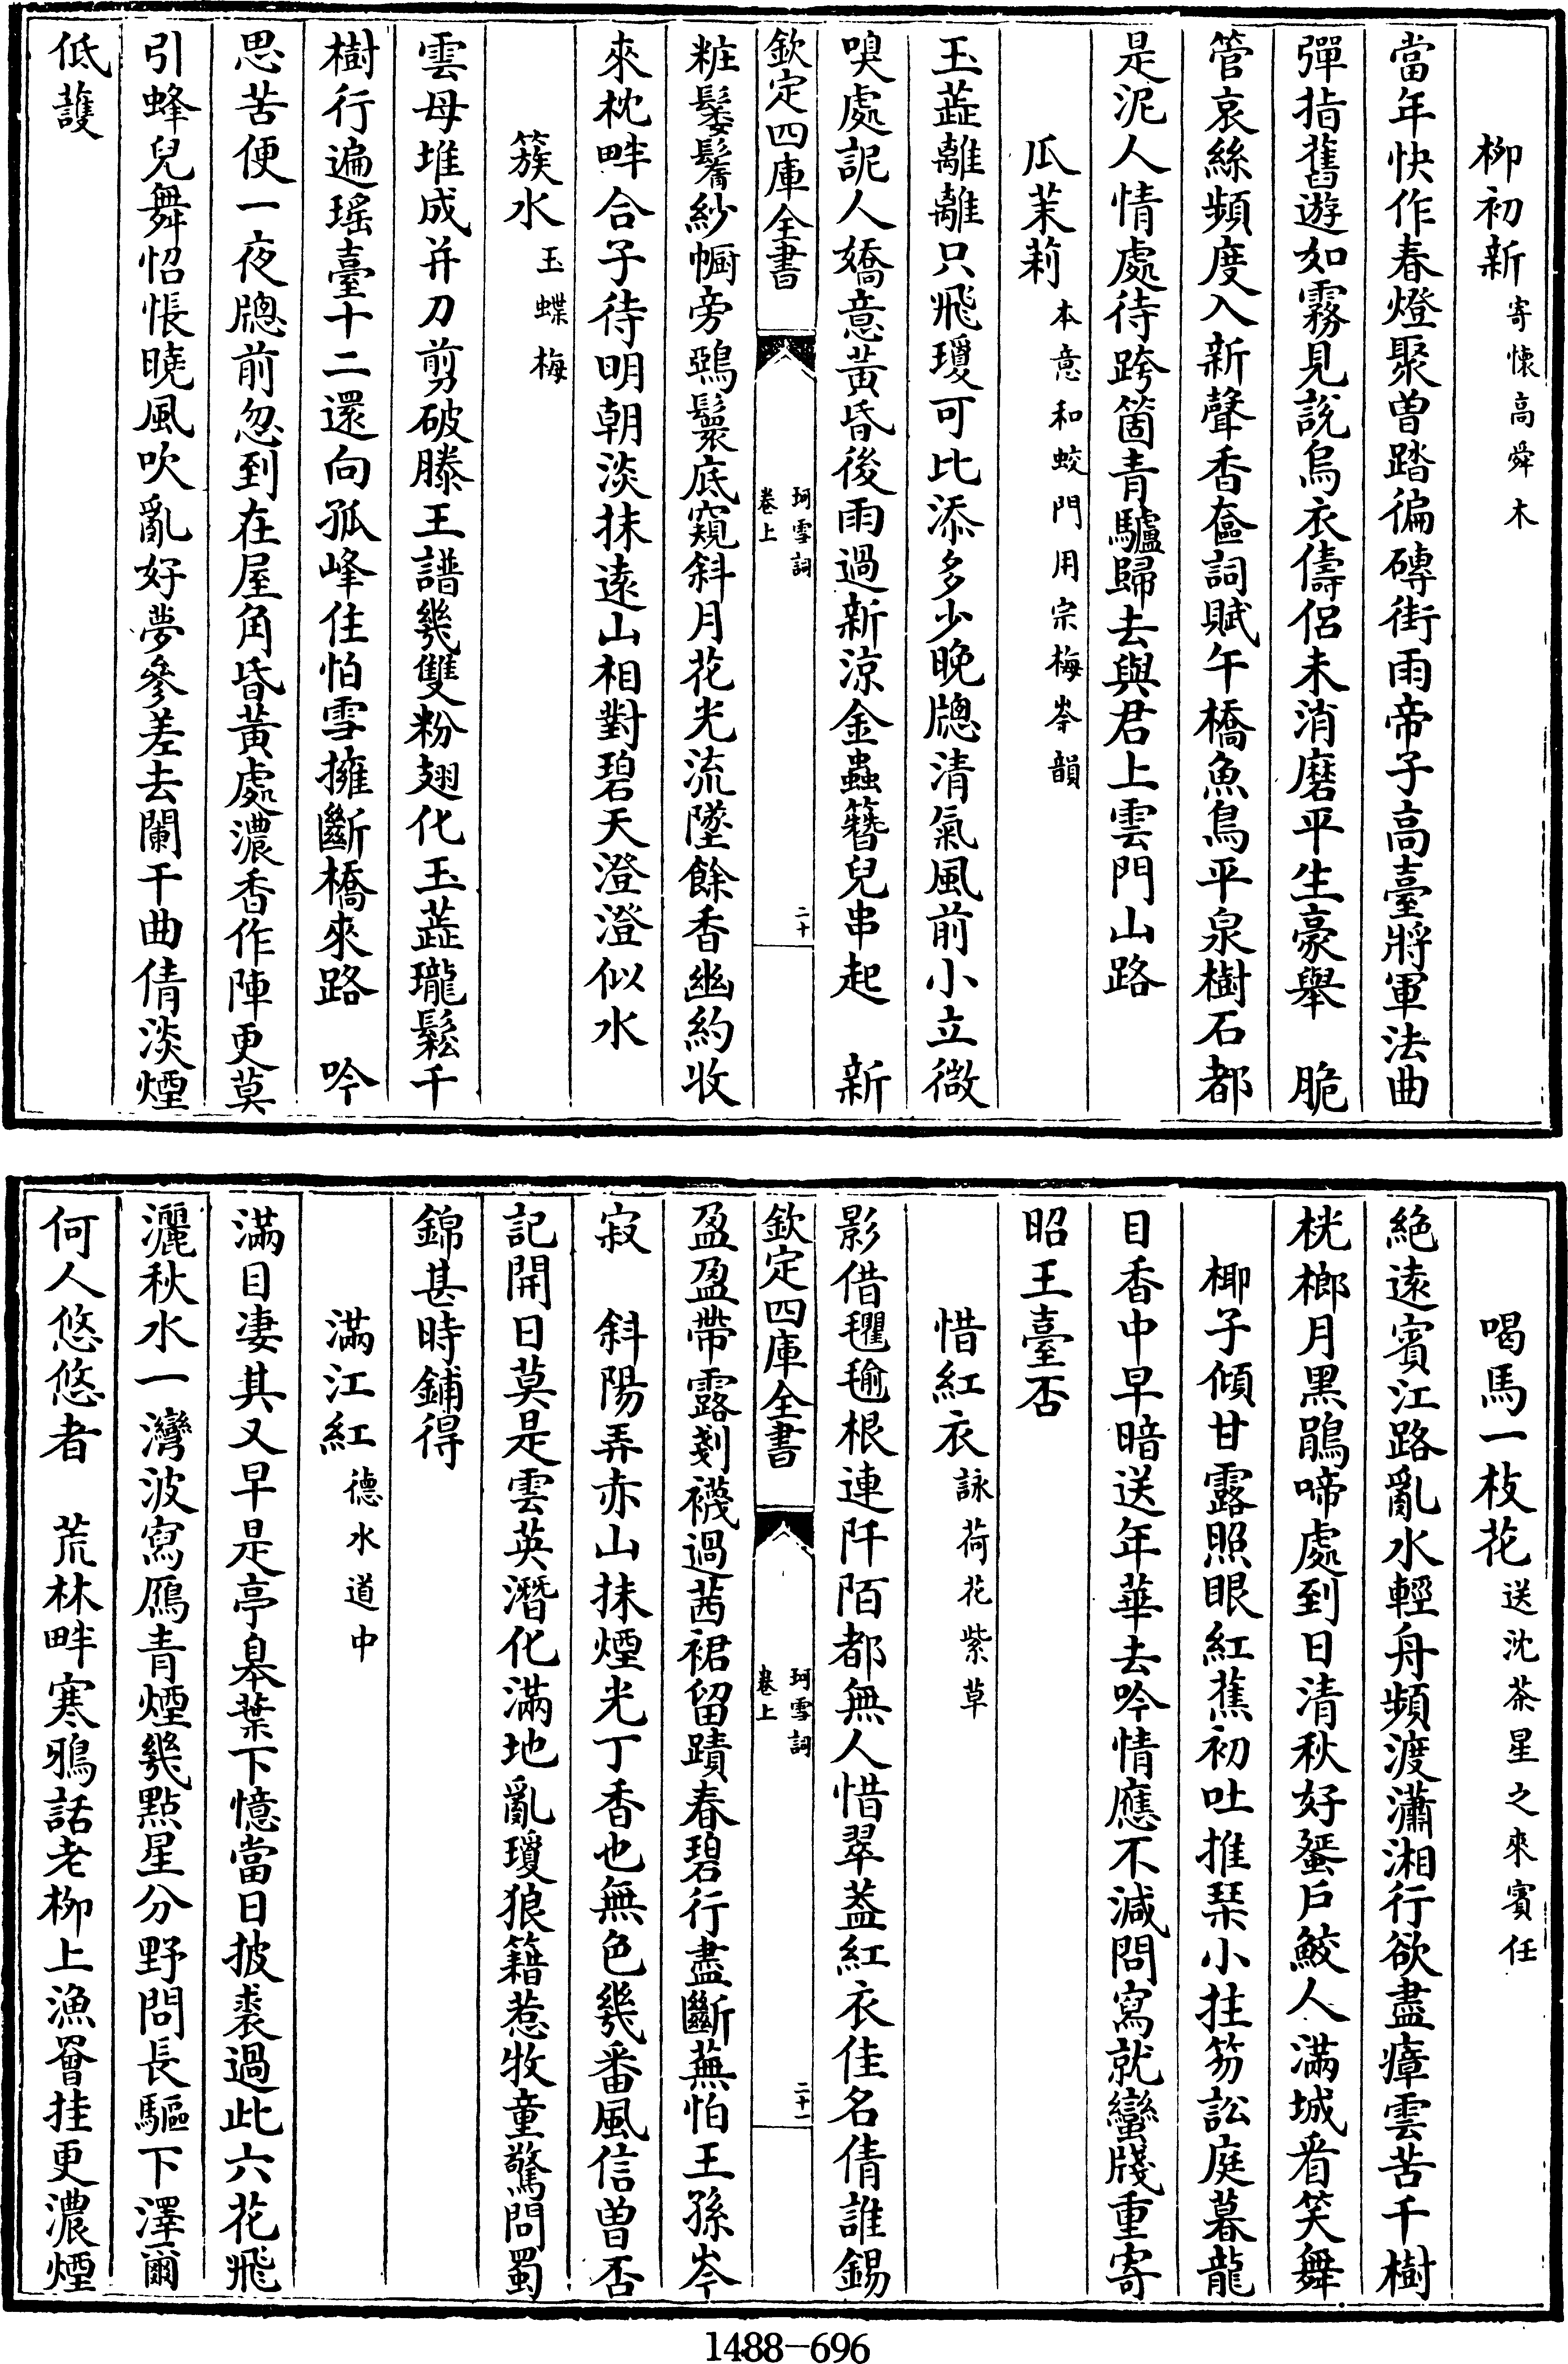 柳初新寄懷高舜木
當年快作春燈聚曽踏徧磚街雨帝子高臺將軍法曲
彈指舊遊如霧見說烏衣儔侣未消磨平生豪舉　脆
管哀絲頻度入新聲香奩詞賦午橋魚鳥平泉樹石都
是泥人情處待跨箇青驢歸去與君上雲門山路
瓜茉莉本意和蛟門用宗梅岑韻
玉蕋離離只飛瓊可比添多少晚牕清氣風前小立微
嗅處詑人嬌意黃昏後雨過新涼金蟲簪兒串起　新
欽定四庫全書
珂雪詞
卷上
二十
粧鬟鬌紗㡡旁鵶鬟底窺斜月花光流墜餘香幽約收
來枕畔合子待明朝淡抹遠山相對碧天澄澄似水
簇水玉蝶梅
雲母堆成并刀剪破滕王譜幾雙粉翅化玉蕋瓏鬆千
樹行遍瑶臺十二還向孤峰住怕雪擁斷橋來路　吟
思苦便一夜牕前忽到在屋角昏黃處濃香作陣更莫
引蜂兒舞怊悵曉風吹亂好夢參差去闌干曲倩淡煙
低護
喝馬一枝花送沈茶星之來賓任
絶遠賓江路亂水輕舟頻渡瀟湘行欲盡瘴雲苦千樹
桄榔月黑鵑啼處到日清秋好蜑戶鮫人滿城看笑舞
椰子傾甘露照眼紅蕉初吐推琹小拄笏訟庭暮龍
目香中早暗送年華去吟情應不減問寫就蠻牋重寄
昭王臺否
惜紅衣詠荷花紫草
影借氍毹根連阡陌都無人惜翠葢紅衣佳名倩誰錫
欽定四庫全書
珂雪詞
卷上
二十一
盈盈帶露剗襪過茜裙留蹟春碧行盡斷蕪怕王孫岑
寂　斜陽弄赤山抹煙光丁香也無色幾番風信曽否
記開日莫是雲英潛化滿地亂瓊狼籍惹牧童驚問蜀
錦甚時鋪得
滿江紅德水道中
滿目凄其又早是亭臯葉下憶當日披裘過此六花飛
灑秋水一灣波寫鴈青煙幾點星分野問長驅下澤爾
何人悠悠者　荒林畔寒鴉話老柳上漁罾挂更濃煙
1488-696